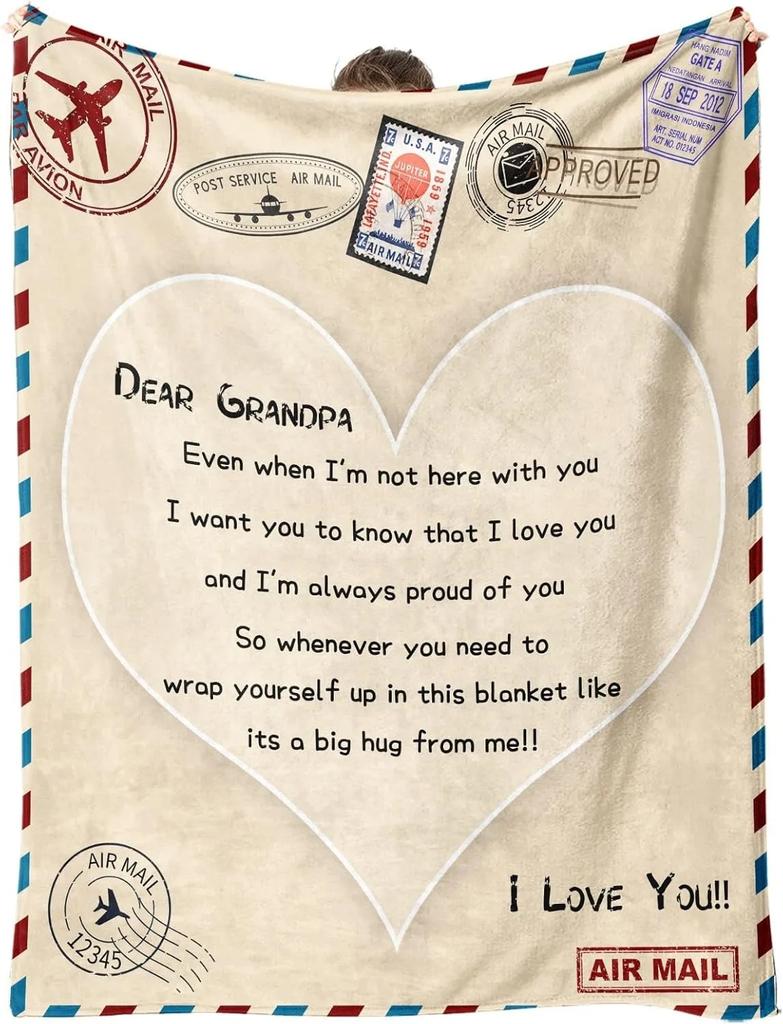 AIR MAIL
PAR AVION
POST SERVICE AIR MAIL
U.S.A.
7¢
7¢
JUPITER
LAFAYETTE, IND.
1859 ★ 1959
AIR MAIL
7¢
7¢
AIR MAIL
12345
APPROVED
HANG NADIM
GATE A
KEDATANGAN ARRIVAL
18 SEP 2012
IMIGRASI INDONESIA
ART. SERIAL NUM
ACT NO. 012345
DEAR GRANDPA
Even when I'm not here with you
I want you to know that I love you
and I'm always proud of you
So whenever you need to
wrap yourself up in this blanket like
its a big hug from me!!
I LOVE YOU!!
AIR MAIL
12345
AIR MAIL